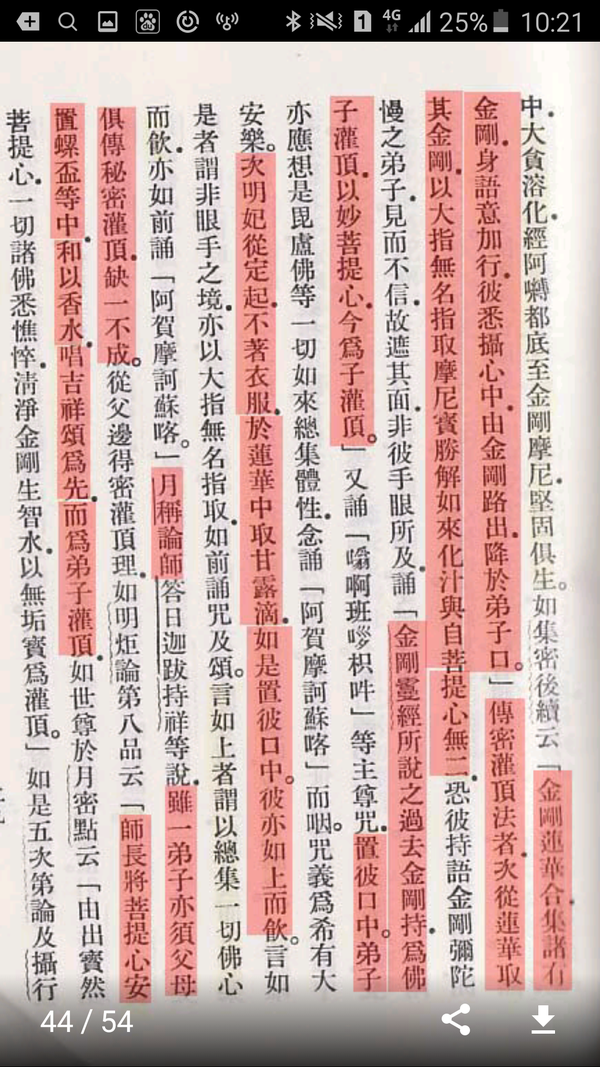 4G
25%
10:21
中。大貪溶化。經阿嚩都底至金剛摩尼。堅固俱生。如集密後續云「金剛蓮華合集諸有
金剛。身語意加行。彼悉攝心中。由金剛路出。降於弟子口。」傳密灌頂法者。次從蓮華取
其金剛。以大指無名指取摩尼寶勝解如來化汁與自菩提心無二。恐彼持語金剛彌陀
慢之弟子。見而不信。故遮其面。非彼手眼所及。誦「金剛鬘經所說之過去金剛持。為佛
子灌頂。以妙菩提心。今為子灌頂。」又誦「嗡啊班 枳吽」等主尊咒。置彼口中。弟子
亦應想是毘盧佛等一切如來總集體性。念誦「阿賀摩訶蘇喀」而咽。咒義為希有大
安樂。次明妃從定起。不著衣服。於蓮華中取甘露滴。如是置彼口中。彼亦如上而飲。言如
是者謂非眼手之境。亦以大指無名指取。如前誦咒及頌。言如上者謂以總集一切佛心
而飲。亦如前誦「阿賀摩訶蘇喀。」月稱論師答曰迦跋持祥等說。雖一弟子亦須父母
俱傳秘密灌頂。缺一不成。從父邊得密灌頂理。如明炬論第八品云「師長將菩提心安
置螺盃等中。和以香水。唱吉祥頌為先。而為弟子灌頂。如世尊於月密點云「由出寶然
菩提心。一切諸佛悉憔悴。清淨金剛生智水。以無垢寶為灌頂。」如是五次第論及攝行
44 / 54